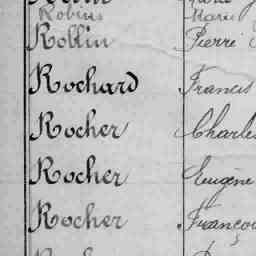 Robins Marie
Rollin Pierre
Rochard Francis
Rocher Charles
Rocher Eugène
Rocher Françoi